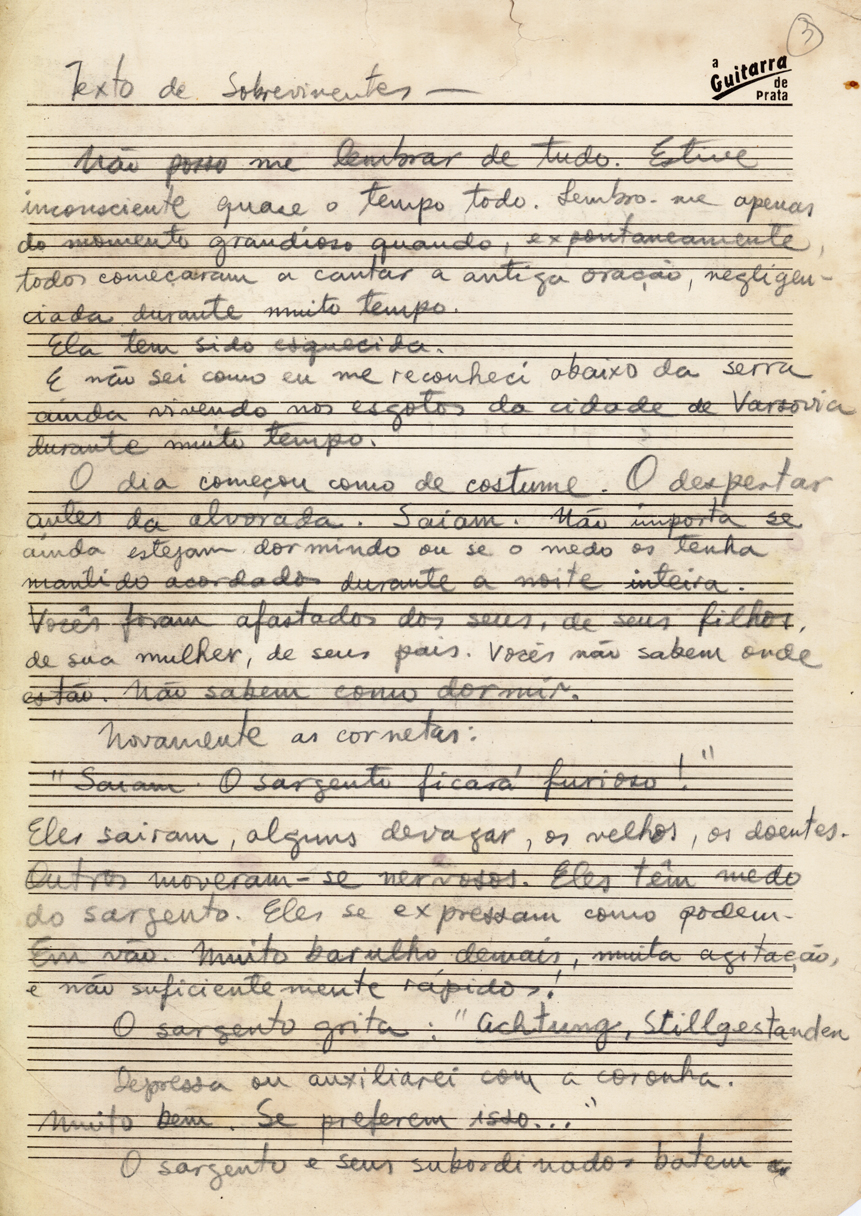 3
a
Guitarra
de
Prata
Texto de Sobreviventes —
Não posso me lembrar de tudo. Estive
inconsciente quase o tempo todo. Lembro-me apenas
do momento grandioso quando, expontaneamente,
todos começaram a cantar a antiga oração, negligen-
ciada durante muito tempo.
Ela tem sido esquecida.
E não sei como eu me reconheci abaixo da serra
ainda vivendo nos esgotos da cidade de Varsovia
durante muito tempo.
O dia começou como de costume. O despertar
antes da alvorada. Saiam. Não importa se
ainda estejam dormindo ou se o medo os tenha
mantido acordados durante a noite inteira.
Vocês foram afastados dos seus, de seus filhos,
de sua mulher, de seus pais. Vocês não sabem onde
estão. Não sabem como dormir.
Novamente as cornetas:
"Saiam. O sargento ficará furioso!"
Eles sairam, alguns devagar, os velhos, os doentes.
Outros moveram-se nervosos. Eles têm medo
do sargento. Eles se expressam como podem.
Em vão. Muito barulho demais, muita agitação,
e não suficientemente rápidos!
O sargento grita: "Achtung, Stillgestanden
Depressa ou auxiliarei com a coronha.
Muito bem. Se preferem isso..."
O sargento e seus subordinados batem